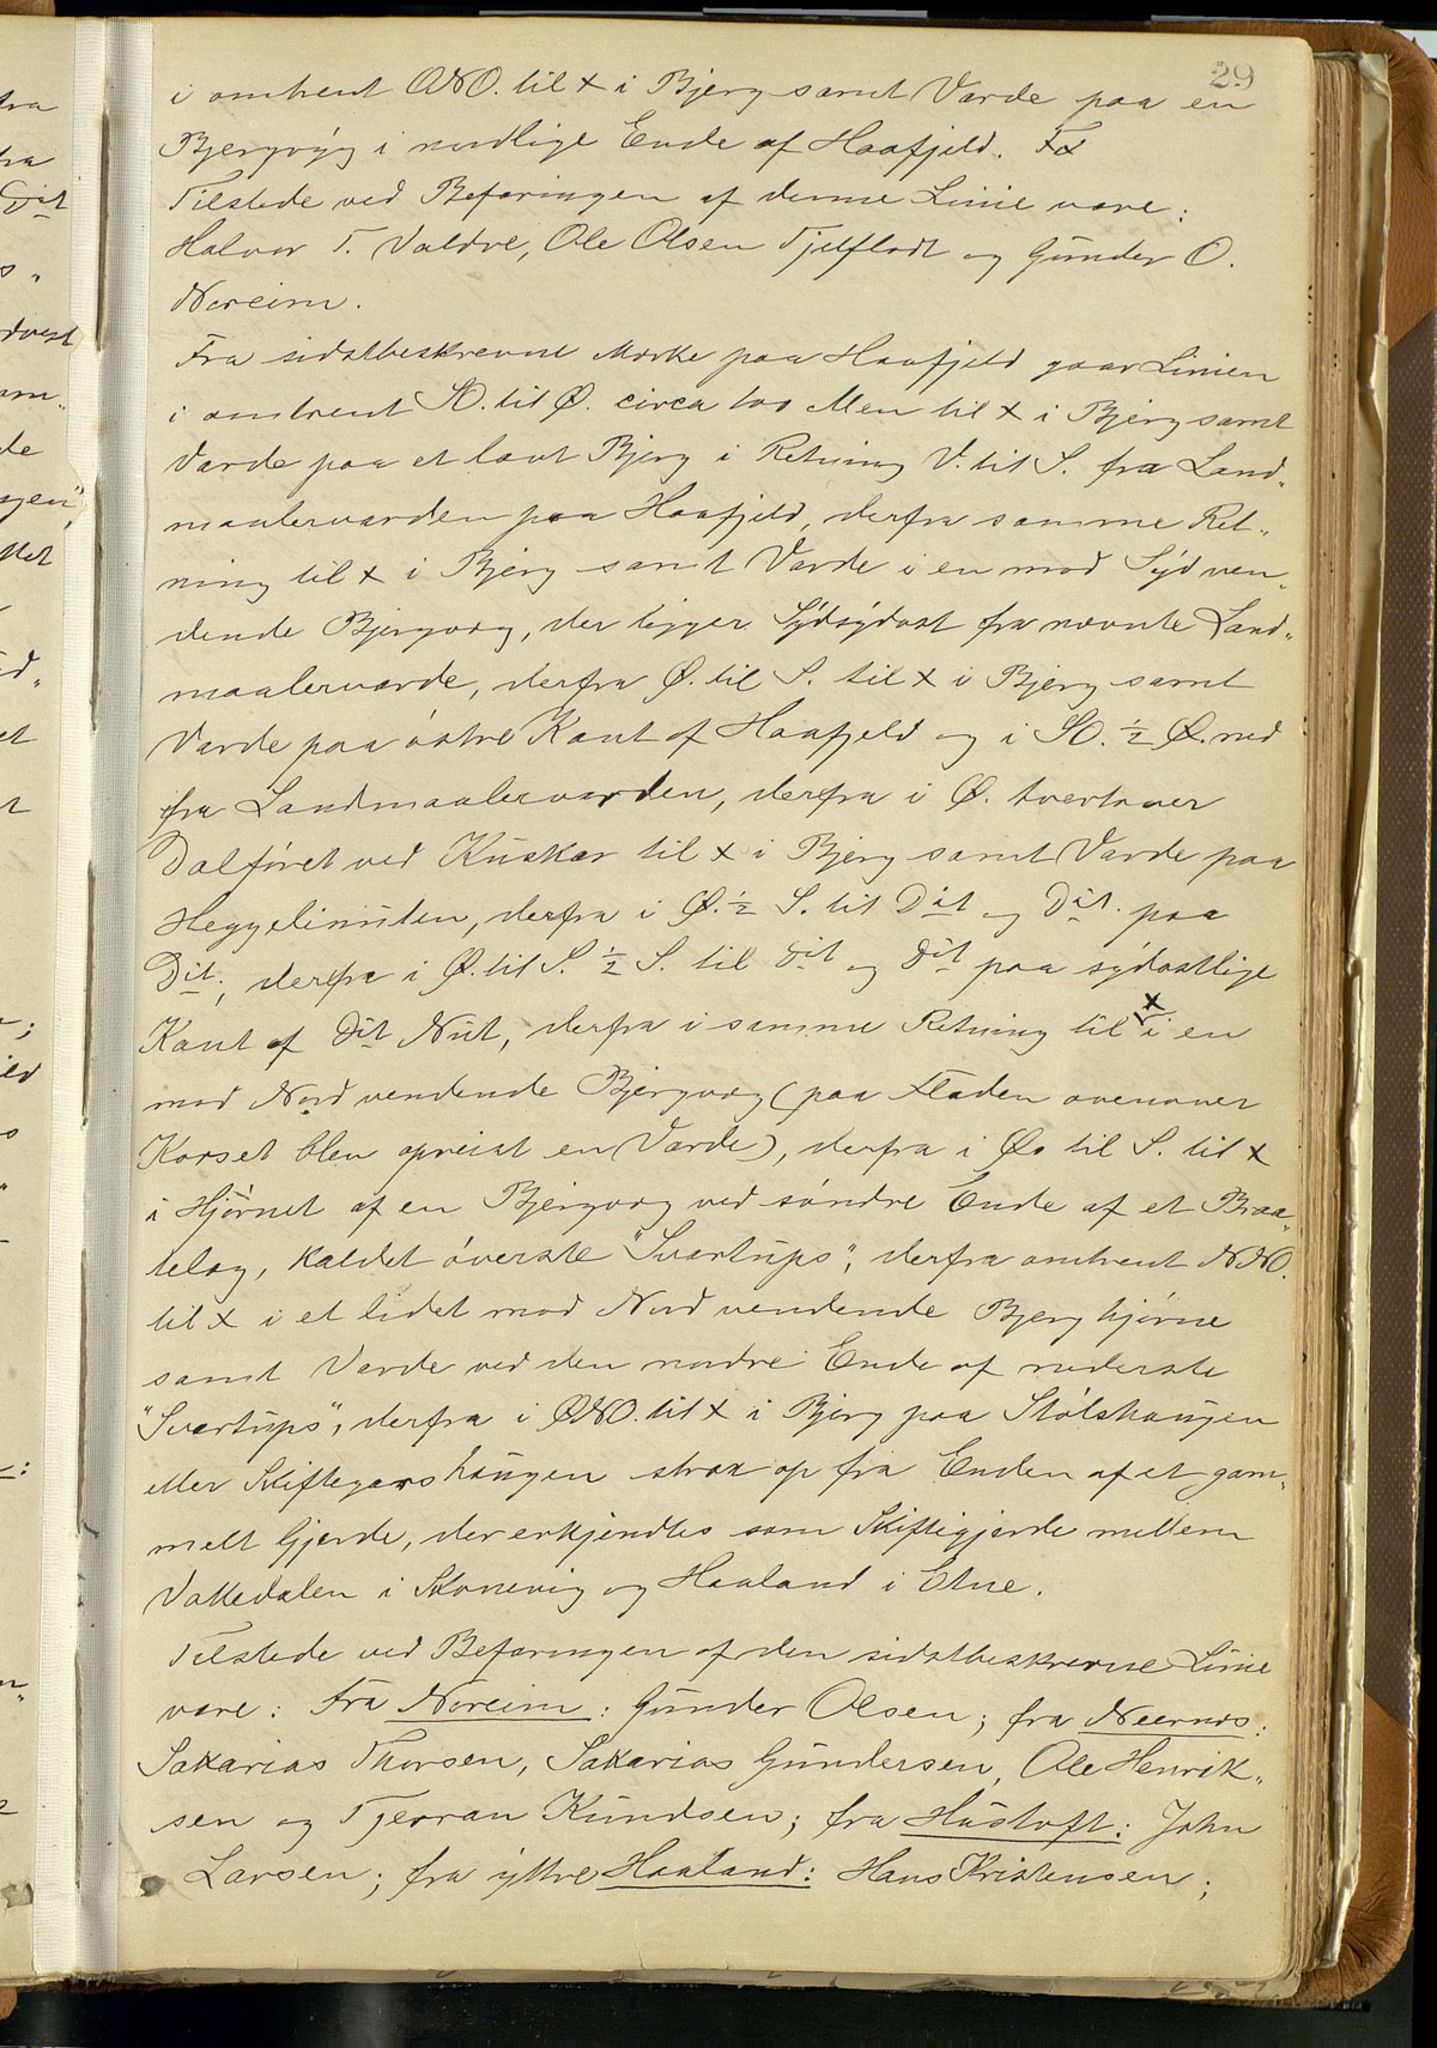 29
i omtrent ONO. til x i Bjerg samt Varde paa en
Bjergryg i nordlige Ende af Haafjeld.
Tilstede ved Befaringen af denne Linie vare:
Halvor T. Valdre, Ole Olsen Tjelfladt og Gunder O.
Noreim.
Fra sidstbeskrevne Mærke paa Haafjeld gaar Linien
i omtrent SO. til Ø. circa 100 Alen til x i Bjerg samt
Varde paa et lavt Bjerg i Retning V. til S. fra Land„
maalervarden paa Haafjeld, derfra samme Ret„
ning til x i Bjerg samt Varde i en mod Syd ven„
dende Bjergvæg, der ligger Sydsydost fra nævnte Land„
maalervarde, derfra Ø. til S. til x i Bjerg samt
Varde paa østre Kant af Haafjeld og i SO. ½ Ø. ned
fra Landmaalervarden, derfra i Ø. tvertover
Dalføret ved Kuskar til x i Bjerg samt Varde paa
Heggelinuten, derfra i Ø. ½ S. til Dit og Dit. paa
Dit., derfra i Ø. til S. ½ S. til Dit og Dit paa sydostlige
Kant af Dit Nut, derfra i samme Retning til x i en
mod Nord vendende Bjergvæg (paa Fladen ovenover
Korset blev opreist en Varde), derfra i Ø. til S. til x
i Hjørnet af en Bjergvæg ved søndre Ende af et Braa„
telæg, kaldet øverste "Svartups", derfra omtrent NNO.
til x i et lidet mod Nord vendende Bjerghjørne
samt Varde ved den nordre Ende af nederste
"Svartups", derfra i ONO. til x i Bjerg paa Stølshaugen
eller Skiftegarshaugen strax op fra Enden af et gam„
melt Gjerde, der erkjendtes som Skiftigjerde mellem
Vakledalen i Skonevig og Haaland i Etne.
Tilstede ved Befaringen af den sidstbeskrevne Linie
vare: Fra Noreim: Gunder Olsen; fra Neernæs:
Sakarias Thorsen, Sakarias Gundersen, Ole Henrik„
sen og Tjerran Kundsen; fra Hustoft: John
Larsen; fra yttre Haaland: Hans Kristensen;